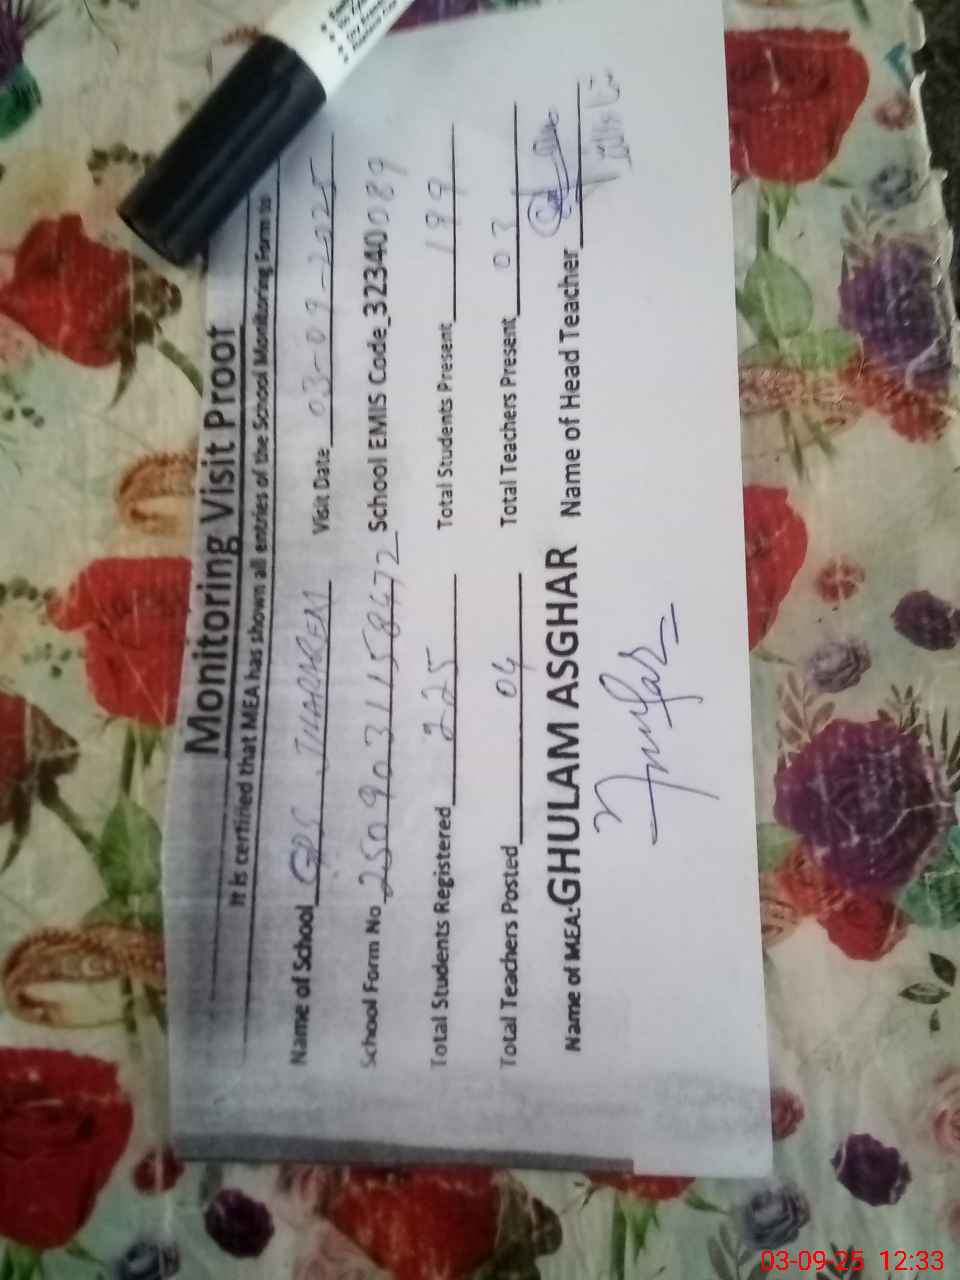 Monitoring Visit Proof
It is certified that MEA has shown all entries of the School Monitoring Form to
Name of School GPS THAREM Visit Date 03-09-2025
School Form No 2509031158472 School EMIS Code 32340089
Total Students Registered 225 Total Students Present 199
Total Teachers Posted 04 Total Teachers Present 03
Name of MEA: GHULAM ASGHAR Name of Head Teacher
03-09-25 12:33